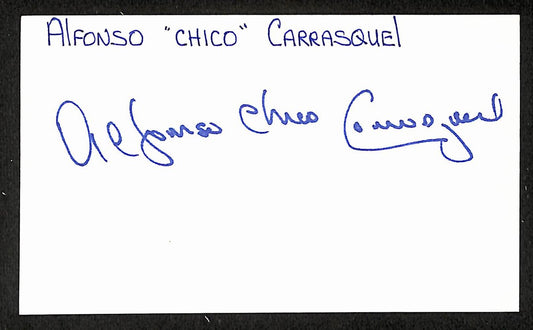 Alfonso "Chico" Carrasquel
Alfonso Chico Carrasquel